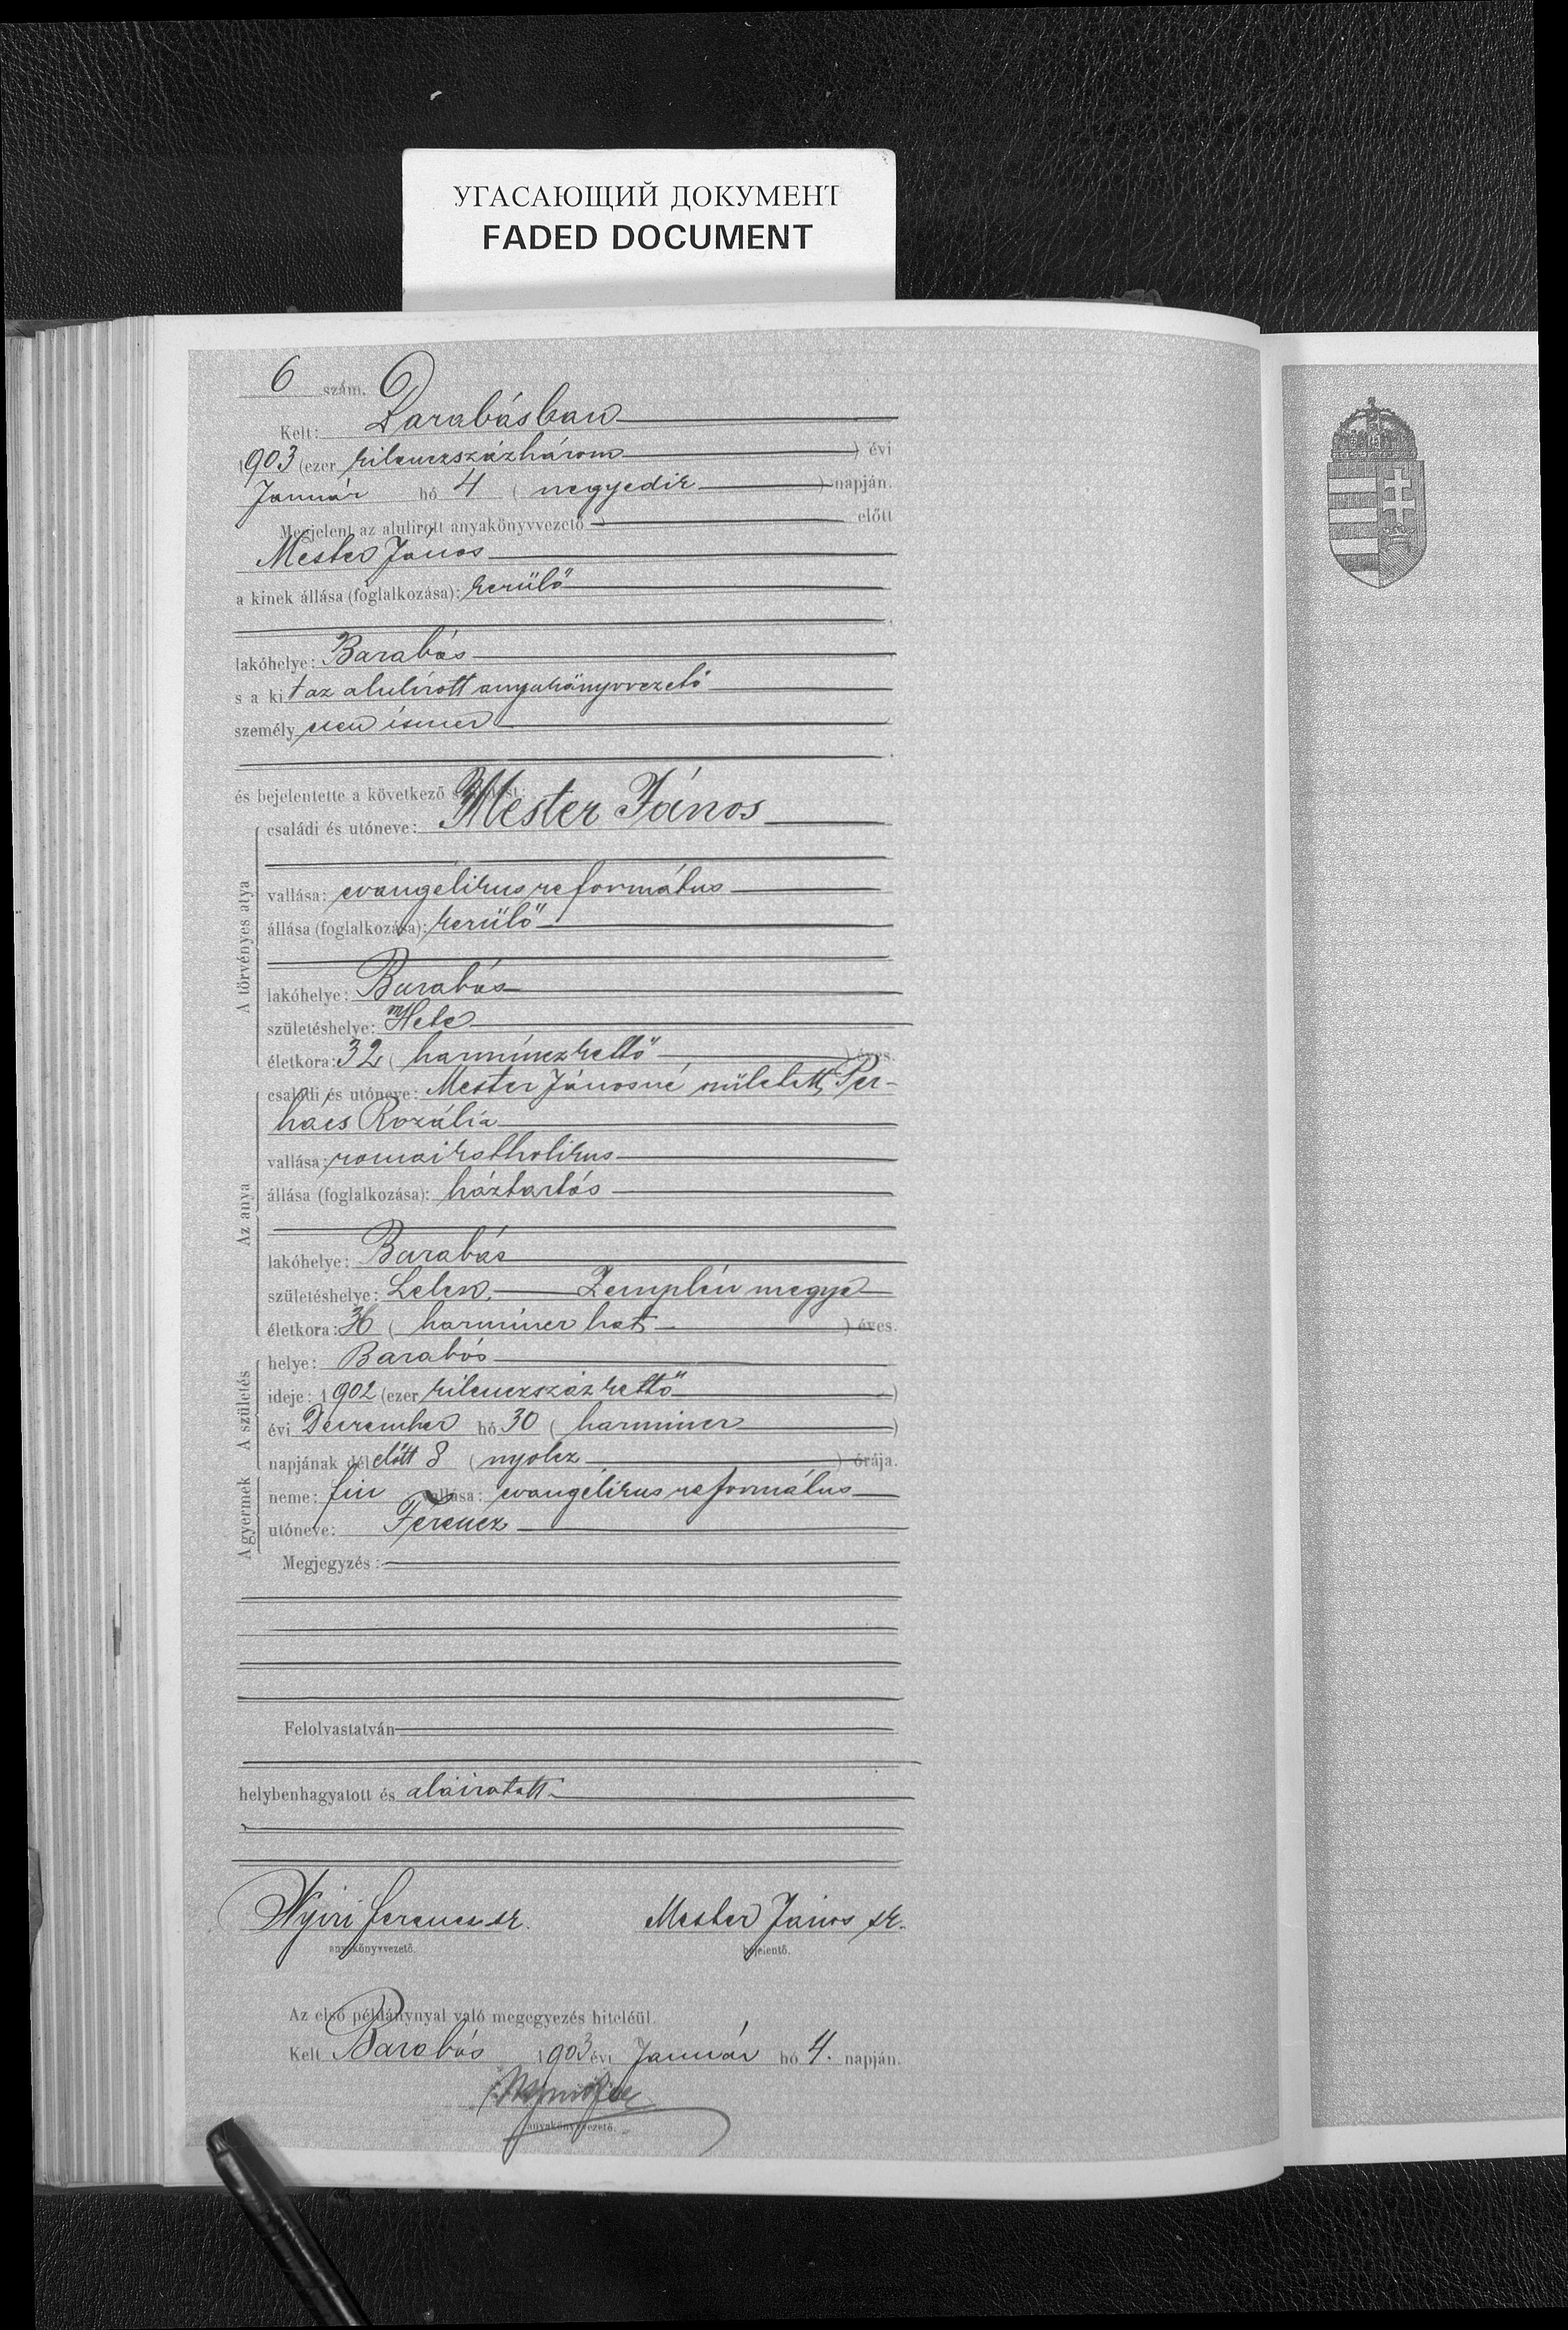 УГАСАЮЩИЙ ДОКУМЕНТ
FADED DOCUMENT
6 szám.
Kelt: Barabásban
1903 (ezer kilenczszázhárom) évi
Január hó 4 (negyedik) napján.
Megjelent az alulirott anyakönyvvezető előtt
Mester János
a kinek állása (foglalkozása): kerülő
lakóhelye: Barabás
s a kit az alulírott anyakönyvvezető
személyesen ismer
és bejelentette a következő születést:
A törvényes atya
családi és utóneve: Mester János
vallása: evangélikus református
állása (foglalkozása): kerülő
lakóhelye: Barabás
születéshelye: Hete
életkora: 32 (harminczkettő) éves.
Az anya
családi és utóneve: Mester Jánosné született Per-
hács Rozália
vallása: romai katholikus
állása (foglalkozása): háztartás
lakóhelye: Barabás
születéshelye: Lelesz, Zemplén megye
életkora: 36 (harmincz hat) éves.
A születés
helye: Barabás
ideje: 1902 (ezer kilenczszáz kettő)
évi Deczember hó 30 (harmincz)
napjának délelőtt 8 (nyolcz) órája.
A gyermek
neme: fiu vallása: evangélikus református
utóneve: Ferencz
Megjegyzés:
Felolvastatván
helybenhagyatott és aláiratott
Nyiri Ferencz sk. Mester János sk.
anyakönyvvezető. bejelentő.
Az első példánynyal való megegyezés hiteléül.
Kelt Barabás 1903 évi Január hó 4. napján.
anyakönyvvezető.